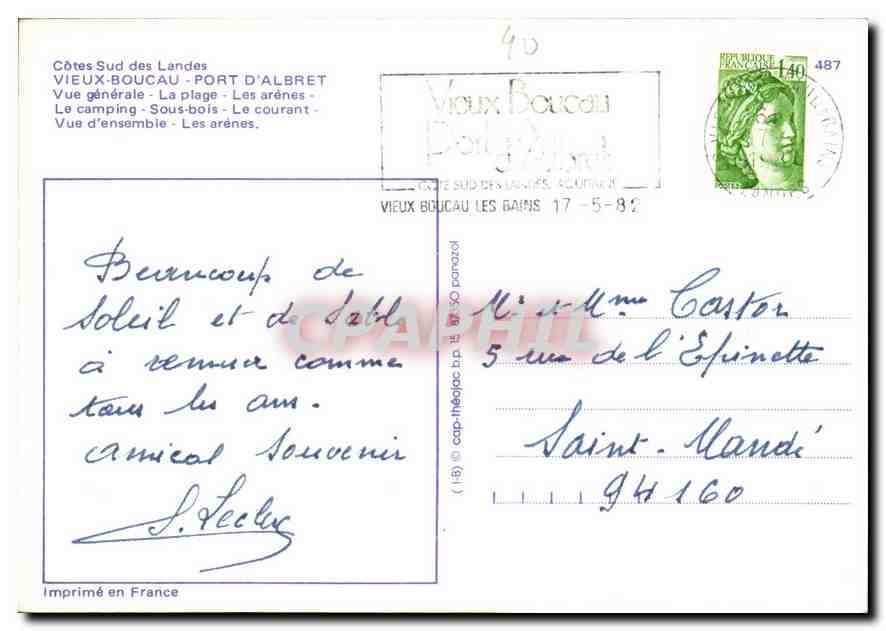 Côtes Sud des Landes
VIEUX-BOUCAU - PORT D'ALBRET
Vue générale - La plage - Les arénes -
Le camping - Sous-bois - Le courant -
Vue d'ensemble - Les arénes.
40
Vieux Boucau
Port d'Albret
COTE SUD DES LANDES, AQUITAINE
VIEUX BOUCAU LES BAINS 17 -5-82
REPUBLIQUE
FRANCAISE 1,40
POSTES
487
Beaucoup de
Soleil et de Sable
à remuer comme
tous les ans.
Amical Souvenir
S. Leclerc
Mr et Mme Castor
5 rue de l'Epinette
Saint-Mandé
94160
(I-B) © cap-théojac b.p. 15 87350 panazol
CPAPHIL
Imprimé en France